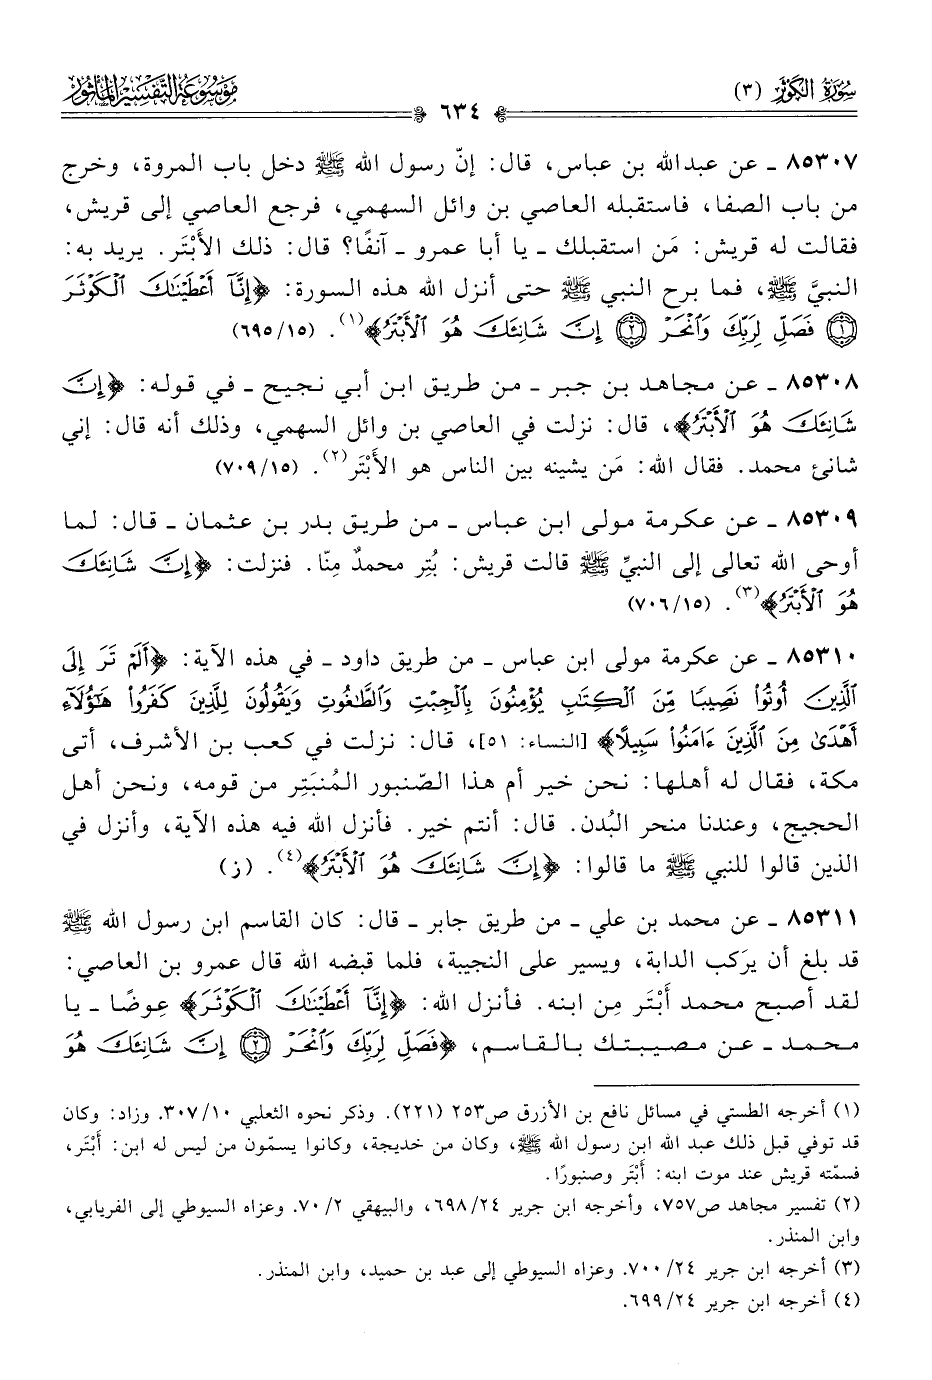 سُورَةُ الكَوْثَرِ (٣)
٦٣٤
مَوْسُوعَة التَّفْسِير المَأْثُور
٨٥٣٠٧ ـ عن عبدالله بن عباس، قال: إنّ رسول الله ﷺ دخل باب المروة، وخرج
من باب الصفا، فاستقبله العاصي بن وائل السهمي، فرجع العاصي إلى قريش،
فقالت له قريش: مَن استقبلك ـ يا أبا عمرو ـ آنفًا؟ قال: ذلك الأَبْتَر. يريد به:
النبيَّ ﷺ، فما برح النبي ﷺ حتى أنزل الله هذه السورة: ﴿إِنَّآ أَعْطَيْنَٰكَ ٱلْكَوْثَرَ
۝١ فَصَلِّ لِرَبِّكَ وَٱنْحَرْ ۝٢ إِنَّ شَانِئَكَ هُوَ ٱلْأَبْتَرُ﴾(١). (١٥/ ٦٩٥)
٨٥٣٠٨ ـ عن مجاهد بن جبر ـ من طريق ابن أبي نجيح ـ في قوله: ﴿إِنَّ
شَانِئَكَ هُوَ ٱلْأَبْتَرُ﴾، قال: نزلت في العاصي بن وائل السهمي، وذلك أنه قال: إني
شانئ محمد. فقال الله: مَن يشينه بين الناس هو الأَبْتَر(٢). (١٥/ ٧٠٩)
٨٥٣٠٩ ـ عن عكرمة مولى ابن عباس ـ من طريق بدر بن عثمان ـ قال: لما
أوحى الله تعالى إلى النبيِّ ﷺ قالت قريش: بُتِر محمدٌ مِنّا. فنزلت: ﴿إِنَّ شَانِئَكَ
هُوَ ٱلْأَبْتَرُ﴾(٣). (١٥/ ٧٠٦)
٨٥٣١٠ ـ عن عكرمة مولى ابن عباس ـ من طريق داود ـ في هذه الآية: ﴿أَلَمْ تَرَ إِلَى
ٱلَّذِينَ أُوتُوا۟ نَصِيبًا مِّنَ ٱلْكِتَٰبِ يُؤْمِنُونَ بِٱلْجِبْتِ وَٱلطَّٰغُوتِ وَيَقُولُونَ لِلَّذِينَ كَفَرُوا۟ هَٰٓؤُلَآءِ
أَهْدَىٰ مِنَ ٱلَّذِينَ ءَامَنُوا۟ سَبِيلًا﴾ [النساء: ٥١]، قال: نزلت في كعب بن الأشرف، أتى
مكة، فقال له أهلها: نحن خير أم هذا الصّنبور المُنبَتِر من قومه، ونحن أهل
الحجيج، وعندنا منحر البُدن. قال: أنتم خير. فأنزل الله فيه هذه الآية، وأنزل في
الذين قالوا للنبي ﷺ ما قالوا: ﴿إِنَّ شَانِئَكَ هُوَ ٱلْأَبْتَرُ﴾(٤). (ز)
٨٥٣١١ ـ عن محمد بن علي ـ من طريق جابر ـ قال: كان القاسم ابن رسول الله ﷺ
قد بلغ أن يركب الدابة، ويسير على النجيبة، فلما قبضه الله قال عمرو بن العاصي:
لقد أصبح محمد أَبْتَر مِن ابنه. فأنزل الله: ﴿إِنَّآ أَعْطَيْنَٰكَ ٱلْكَوْثَرَ﴾ عِوضًا ـ يا
محمد ـ عن مصيبتك بالقاسم، ﴿فَصَلِّ لِرَبِّكَ وَٱنْحَرْ ۝٢ إِنَّ شَانِئَكَ هُوَ
(١) أخرجه الطستي في مسائل نافع بن الأزرق ص٢٥٣ (٢٢١). وذكر نحوه الثعلبي ١٠/ ٣٠٧. وزاد: وكان
قد توفي قبل ذلك عبد الله ابن رسول الله ﷺ، وكان من خديجة، وكانوا يسمّون من ليس له ابن: أَبْتَر،
فسمّته قريش عند موت ابنه: أَبْتَر وصنبورًا.
(٢) تفسير مجاهد ص٧٥٧، وأخرجه ابن جرير ٢٤/ ٦٩٨، والبيهقي ٢/ ٧٠. وعزاه السيوطي إلى الفريابي،
وابن المنذر.
(٣) أخرجه ابن جرير ٢٤/ ٧٠٠. وعزاه السيوطي إلى عبد بن حميد، وابن المنذر.
(٤) أخرجه ابن جرير ٢٤/ ٦٩٩.